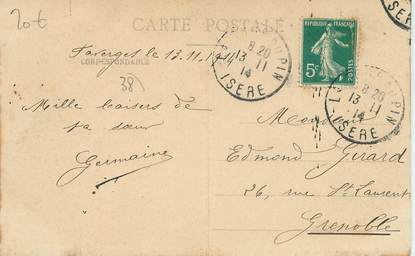 20€
CARTE POSTALE
Faverges le 13.11.1914
CORRESPONDANCE
38
Mille baisers de
ta sœur
Germaine
8 20
13 - 11
14
ISERE
REPUBLIQUE FRANÇAISE
5c
POSTES
PIN
8 20
13 - 11
14
ISERE
Monsieur
Edmond Girard
26, rue St Laurent
Grenoble